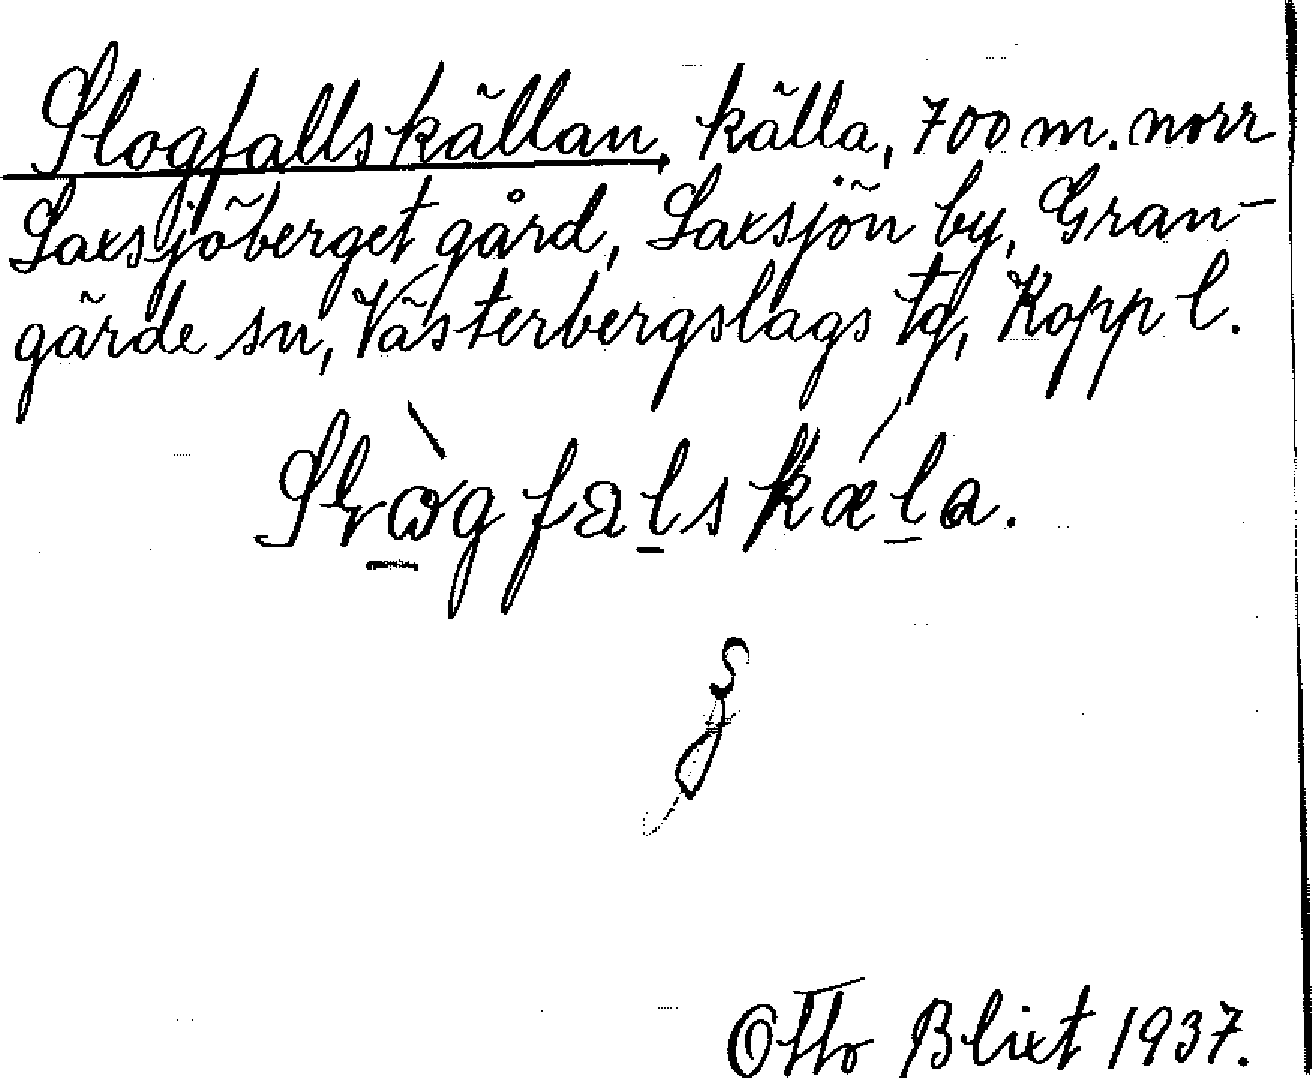 Slogfallskällan, källa, 700 m. norr
Saxsjöberget gård, Saxsjön by, Gran-
gärde sn, Västerbergslags tg, Kopp l.
Otto Blixt 1937.